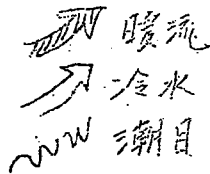 暖流
冷水
潮目